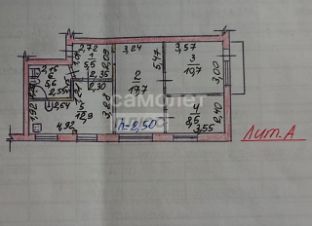 2,72
3,24
3,57
1
5,5
2,09
5,47
3
10,7
3,00
2,35
2,30
2
17,7
самолет
плюс
2,54
1,92
5
12,9
3,28
4
8,5
2,40
h=2,50
4,92
3,55
Лит. А